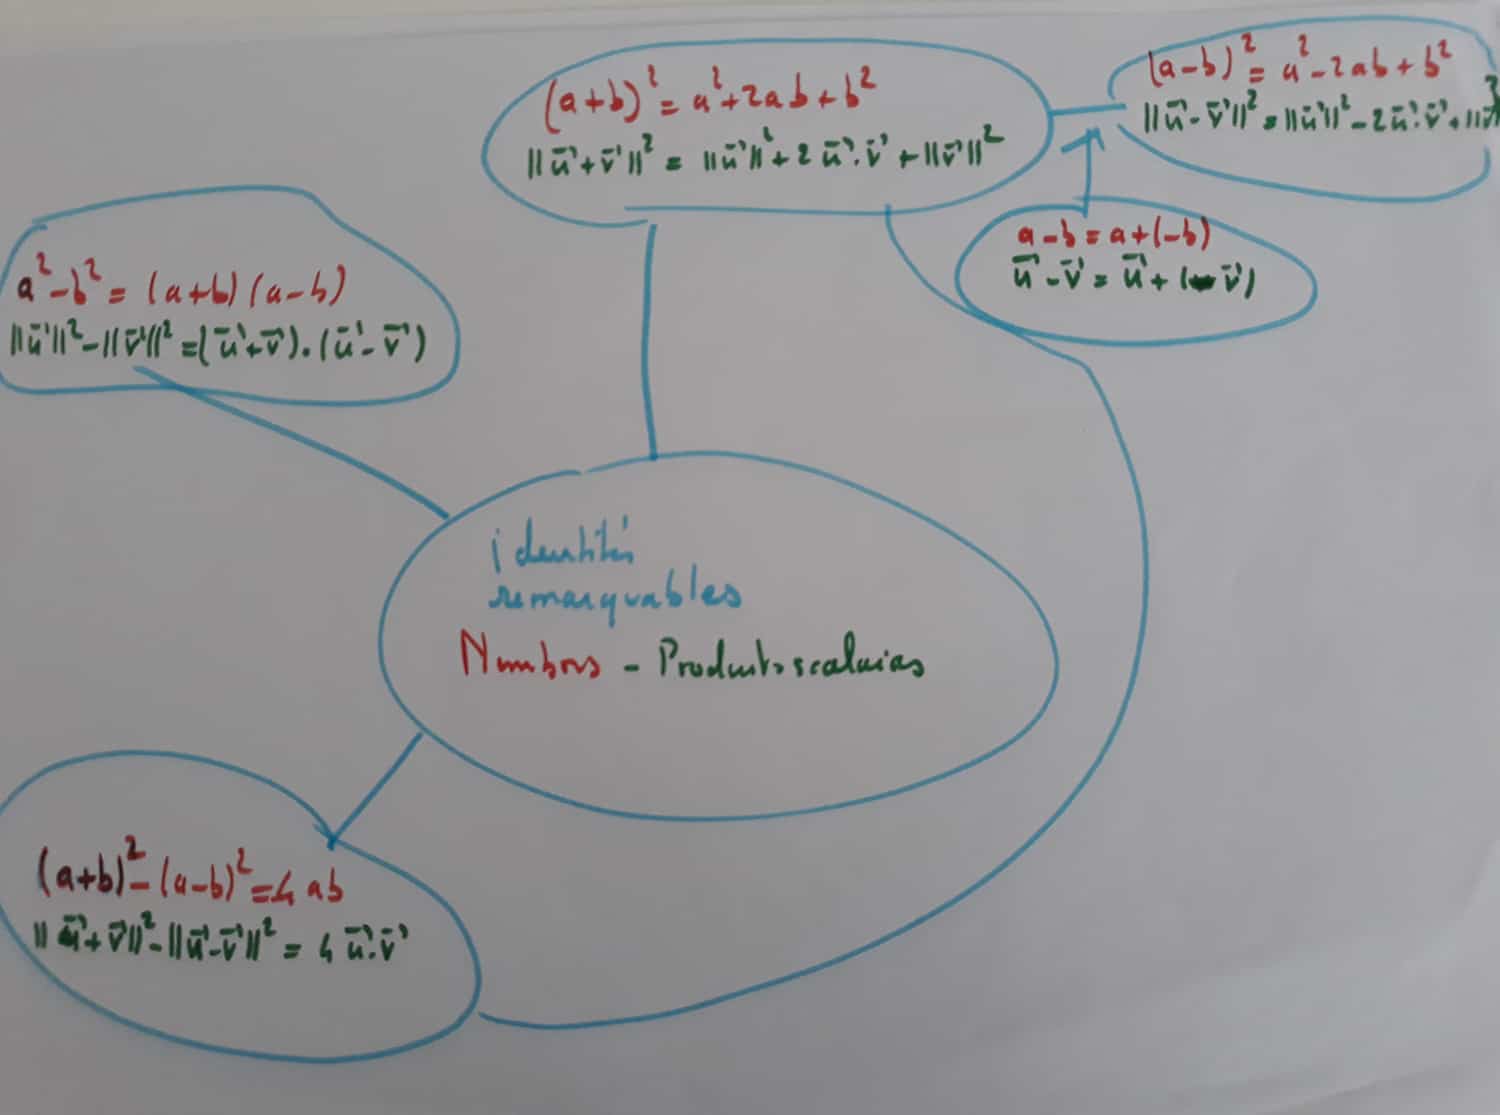 (a+b)² = a²+2ab+b²
||u⃗+v⃗||² = ||u⃗||²+2u⃗.v⃗+||v⃗||²
(a-b)² = a²-2ab+b²
||u⃗-v⃗||² = ||u⃗||²-2u⃗.v⃗+||v⃗||²
a-b = a+(-b)
u⃗-v⃗ = u⃗+(-v⃗)
a²-b² = (a+b)(a-b)
||u⃗||²-||v⃗||² = (u⃗+v⃗).(u⃗-v⃗)
identités
remarquables
Nombres - Produits scalaires
(a+b)²-(a-b)² = 4ab
||u⃗+v⃗||²-||u⃗-v⃗||² = 4u⃗.v⃗